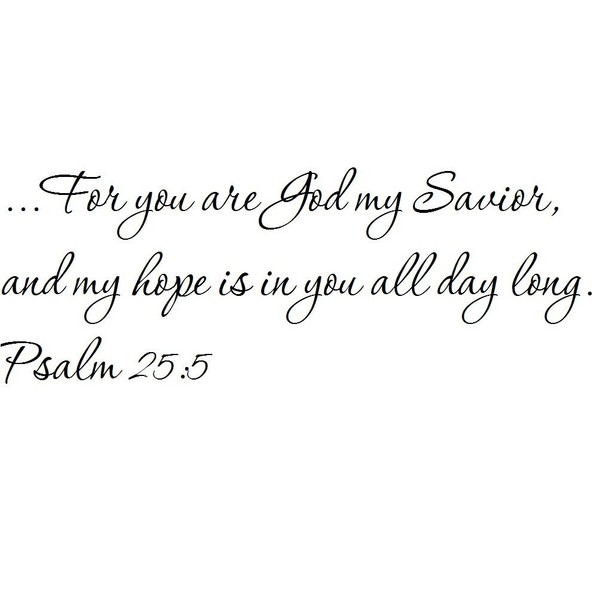 ...For you are God my Savior,
and my hope is in you all day long.
Psalm 25:5